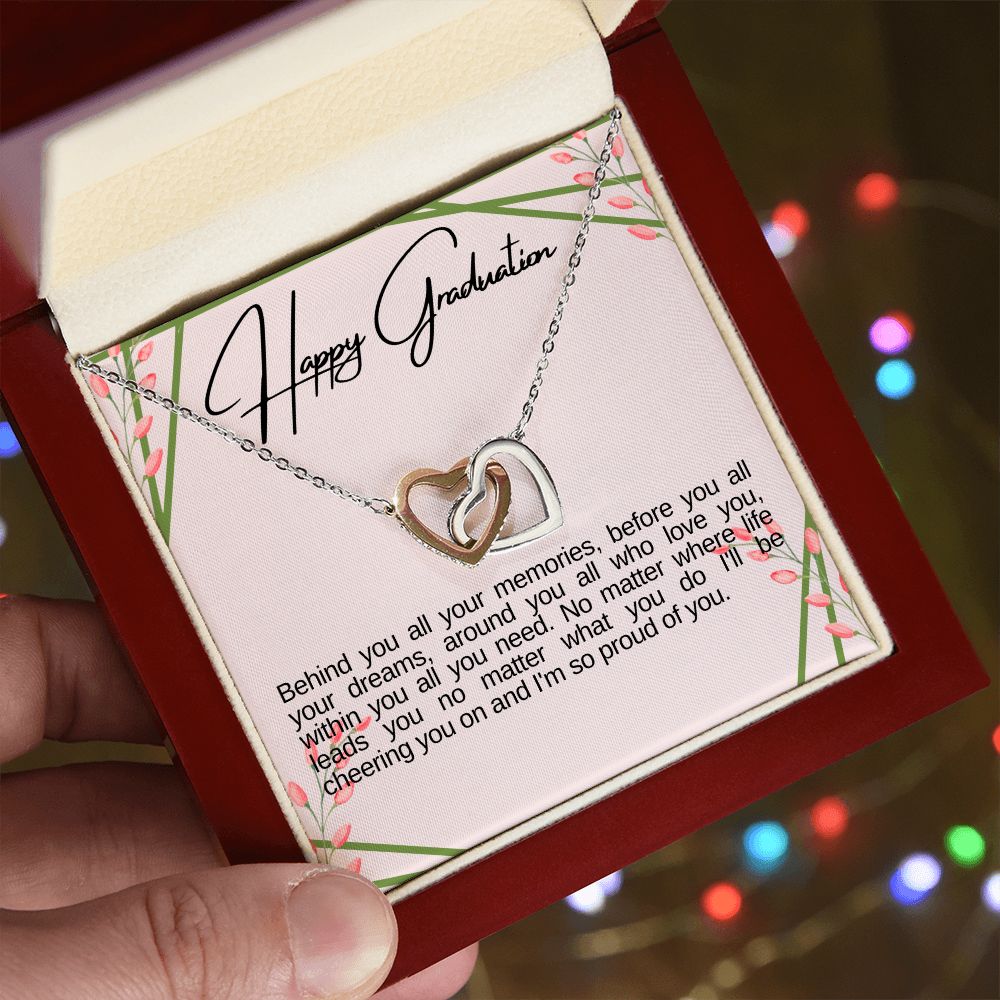 Happy Graduation
Behind you all your memories, before you all
your dreams, around you all who love you,
within you all you need. No matter where life
leads you no matter what you do I'll be
cheering you on and I'm so proud of you.